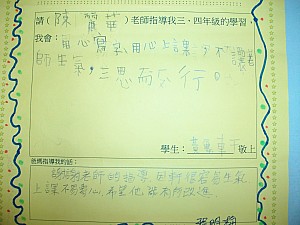 請(陳麗華)老師指導我三、四年級的學習,
我會:用心寫末用心上課,不讓著
師生氣,三思而后行。
學生: 敬上
爸媽指導我的話:
謝謝老師的指導,因 很容易生氣
上課不專心,希望他能有所改進。